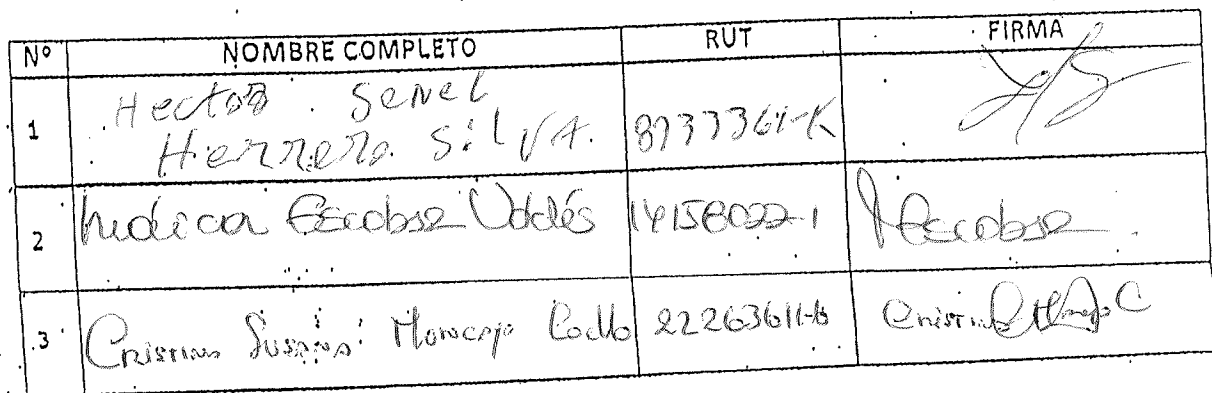 Nº NOMBRE COMPLETO RUT FIRMA
Hector Senel
1 Herrera Silva. 8737361-K
2 Escobar Valdés 14158022-1 Escobar
3 Cristina Susana Coello 22263611-6 Cristina C